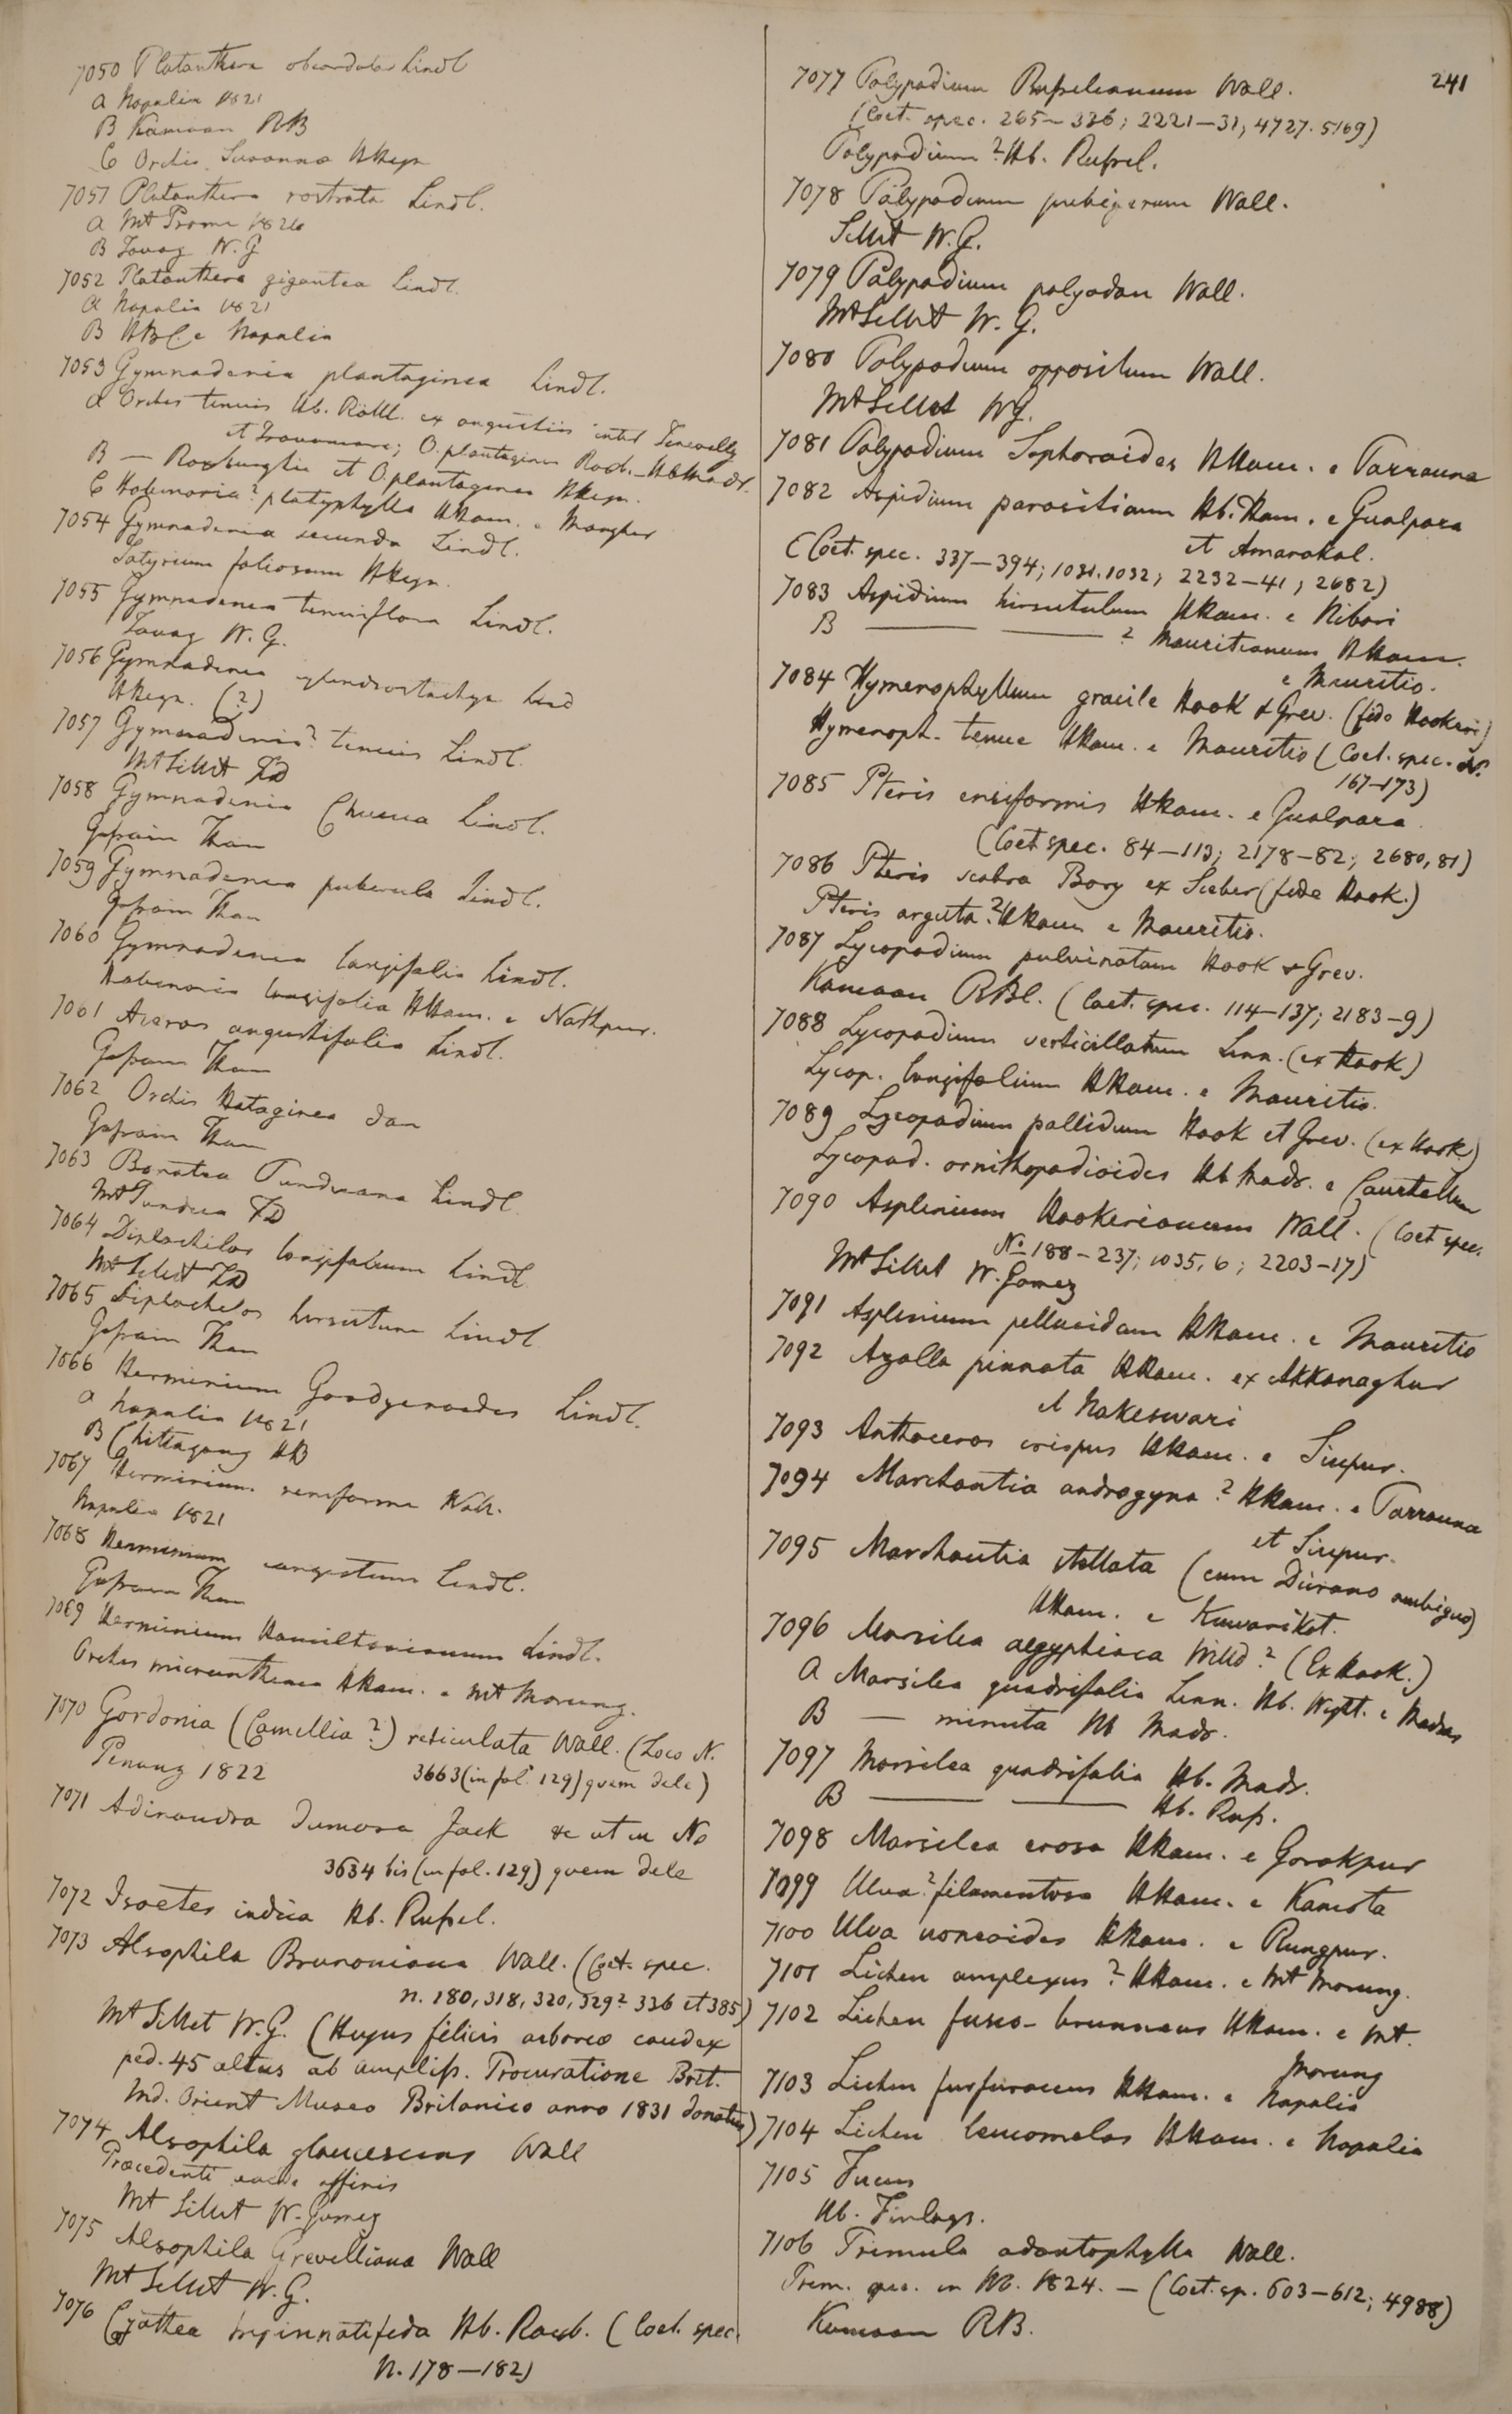 7050 Platanthera obcordata Lindl
a Napalia 1821
B Kamaon RB
C Orchis Susannae HHeyn
7051 Platanthera rostrata Lindl.
a Mt Prome 1826
B Tavoy W. G
7052 Platanthera gigantea Lindl.
a Napalia 1821
B HBC. e Napalia
7053 Gymnadenia plantaginea Lindl.
a Orchis tenuis Hb. Rottl. ex angustiis inter Tenevelly
et Travancore; O. plantaginea Roxb. HbMadr.
B — Roxburghii et O. plantaginea HHeyn.
C Habenaria? platyphylla HHam. e Mongher
7054 Gymnadenia secunda Lindl.
Satyrium foliosum HHeyn.
7055 Gymnadenia tenuiflora Lindl.
Tavoy W. G.
7056 Gymnadenia cylindrostachya Lind
HHeyn. (?)
7057 Gymnadenia? tenuis Lindl.
Mt Sillet FD
7058 Gymnadenia Chusua Lindl.
Gosain Than
7059 Gymnadenia puberula Lindl.
Gosain Than
7060 Gymnadenia longifolia Lindl.
Habenaria longifolia HHam. e Nathpur.
7061 Aceras angustifolia Lindl.
Gosain Than
7062 Orchis Hatagirea Don
Gosain Than
7063 Bonatea Punduana Lindl.
Mt Pundua FD
7064 Diplochilos longifolium Lindl.
Mt Sillet FD
7065 Diplochilos hirsutum Lindl
Gosain Than
7066 Herminium Goodyeroides Lindl.
a Napalia 1821
B Chittagong HB
7067 Herminium reniforme Wall.
Napalia 1821
7068 Herminium congestum Lindl.
Gosain Than
7069 Herminium Hamiltonianum Lindl.
Orchis micranthema HHam. e Mt Morung.
7070 Gordonia (Camellia?) reticulata Wall. (Loco N.
Penang 1822 3663 (in fol. 129) quem dele)
7071 Adinandra dumosa Jack &c ut in No
3634 bis (in fol. 129) quem dele
7072 Isoetes indica Hb. Rufsel.
7073 Alsophila Brunoniana Wall. (Coet. spec.
n. 180, 318, 320, 329? 336 et 385)
Mt Sillet W. G. (Hujus filicis arboreae caudex
ped. 45 altus ab ampliss. Procuratione Brit.
Ind. Orient Museo Britanico anno 1831 donatus)
7074 Alsophila glaucescens Wall
Praecedenti valde affinis
Mt Sillet W. Gomez
7075 Alsophila Grevilliana Wall
Mt Sillet W. G.
7076 Cyathea bipinnatifida Hb. Roxb. (Coet. spec.
n. 178—182)
241
7077 Polypodium Rufselianum Wall.
(Coet. spec. 265—336; 2221—31, 4727. 5169)
Polypodium? Hb. Rufsel.
7078 Polypodium pubigerum Wall.
Sillet W. G.
7079 Polypodium polyodon Wall.
Mt Sillet W. G.
7080 Polypodium oppositum Wall.
Mt Sillet WG.
7081 Polypodium Sophoroides HHam. e Parrauna
7082 Aspidium parasiticum Hb. Ham. e Gualpara
et Amarakal.
(Coet. spec. 337—394; 1031. 1032; 2232—41; 2682)
7083 Aspidium hirsutulum HHam. e Nibari
B — — ? Mauritianum HHam.
e Mauritio.
7084 Hymenophyllum gracile Hook & Grev. (fide Hookeri)
Hymenoph. tenue HHam. e Mauritio (Coet. spec. N.
167—173)
7085 Pteris ensiformis HHam. e Gualpara
(Coet spec. 84—113; 2178—82; 2680, 81)
7086 Pteris scabra Bory ex Sieber (fide Hook.)
Pteris arguta? HHam e Mauritio.
7087 Lycopodium pulvinatum Hook & Grev.
Kamaon RBl. (Coet. spec. 114—137; 2183—9)
7088 Lycopodium verticillatum Linn. (ex Hook)
Lycop. longifolium HHam. e Mauritio.
7089 Lycopodium pallidum Hook et Grev. (ex Hook.)
Lycopod. ornithopodioides Hb Madr. e Courtallum
7090 Asplenium Hookerianum Wall. (Coet spec.
No 188—237; 1035, 6; 2203—17)
Mt Sillet W. Gomez
7091 Asplenium pellucidum HHam. e Mauritio
7092 Azolla pinnata HHam. ex Akkanaghur
et Nakeswari
7093 Anthoceros crispus HHam. e Sirpur.
7094 Marchantia androgyna? HHam. e Parrauna
et Sirpur.
7095 Marchantia stellata (cum Dicrano ambiguo)
HHam. e Kuwarikot.
7096 Marsilea aegyptiaca Willd? (Ex Hook.)
a Marsilea quadrifolia Linn. Hb. Wight. e Madras
B — minuta Hb Madr.
7097 Marsilea quadrifolia Hb. Madr.
B — — Hb. Rufs.
7098 Marsilea erosa HHam. e Gorakpur
7099 Ulva? filamentosa HHam. e Kamota
7100 Ulva nonoides HHam. e Rungpur.
7101 Lichen amplexus? HHam. e Mt Morung.
7102 Lichen fusco-brunneus HHam. e Mt.
Morung
7103 Lichen furfuraceus HHam. e Napalia
7104 Lichen leucomelas HHam. e Napalia
7105 Fucus
Hb. Finlays.
7106 Primula odontophylla Wall.
Prim. spec. in Hb. 1824. — (Coet. sp. 603—612; 4988)
Kumaon RB.